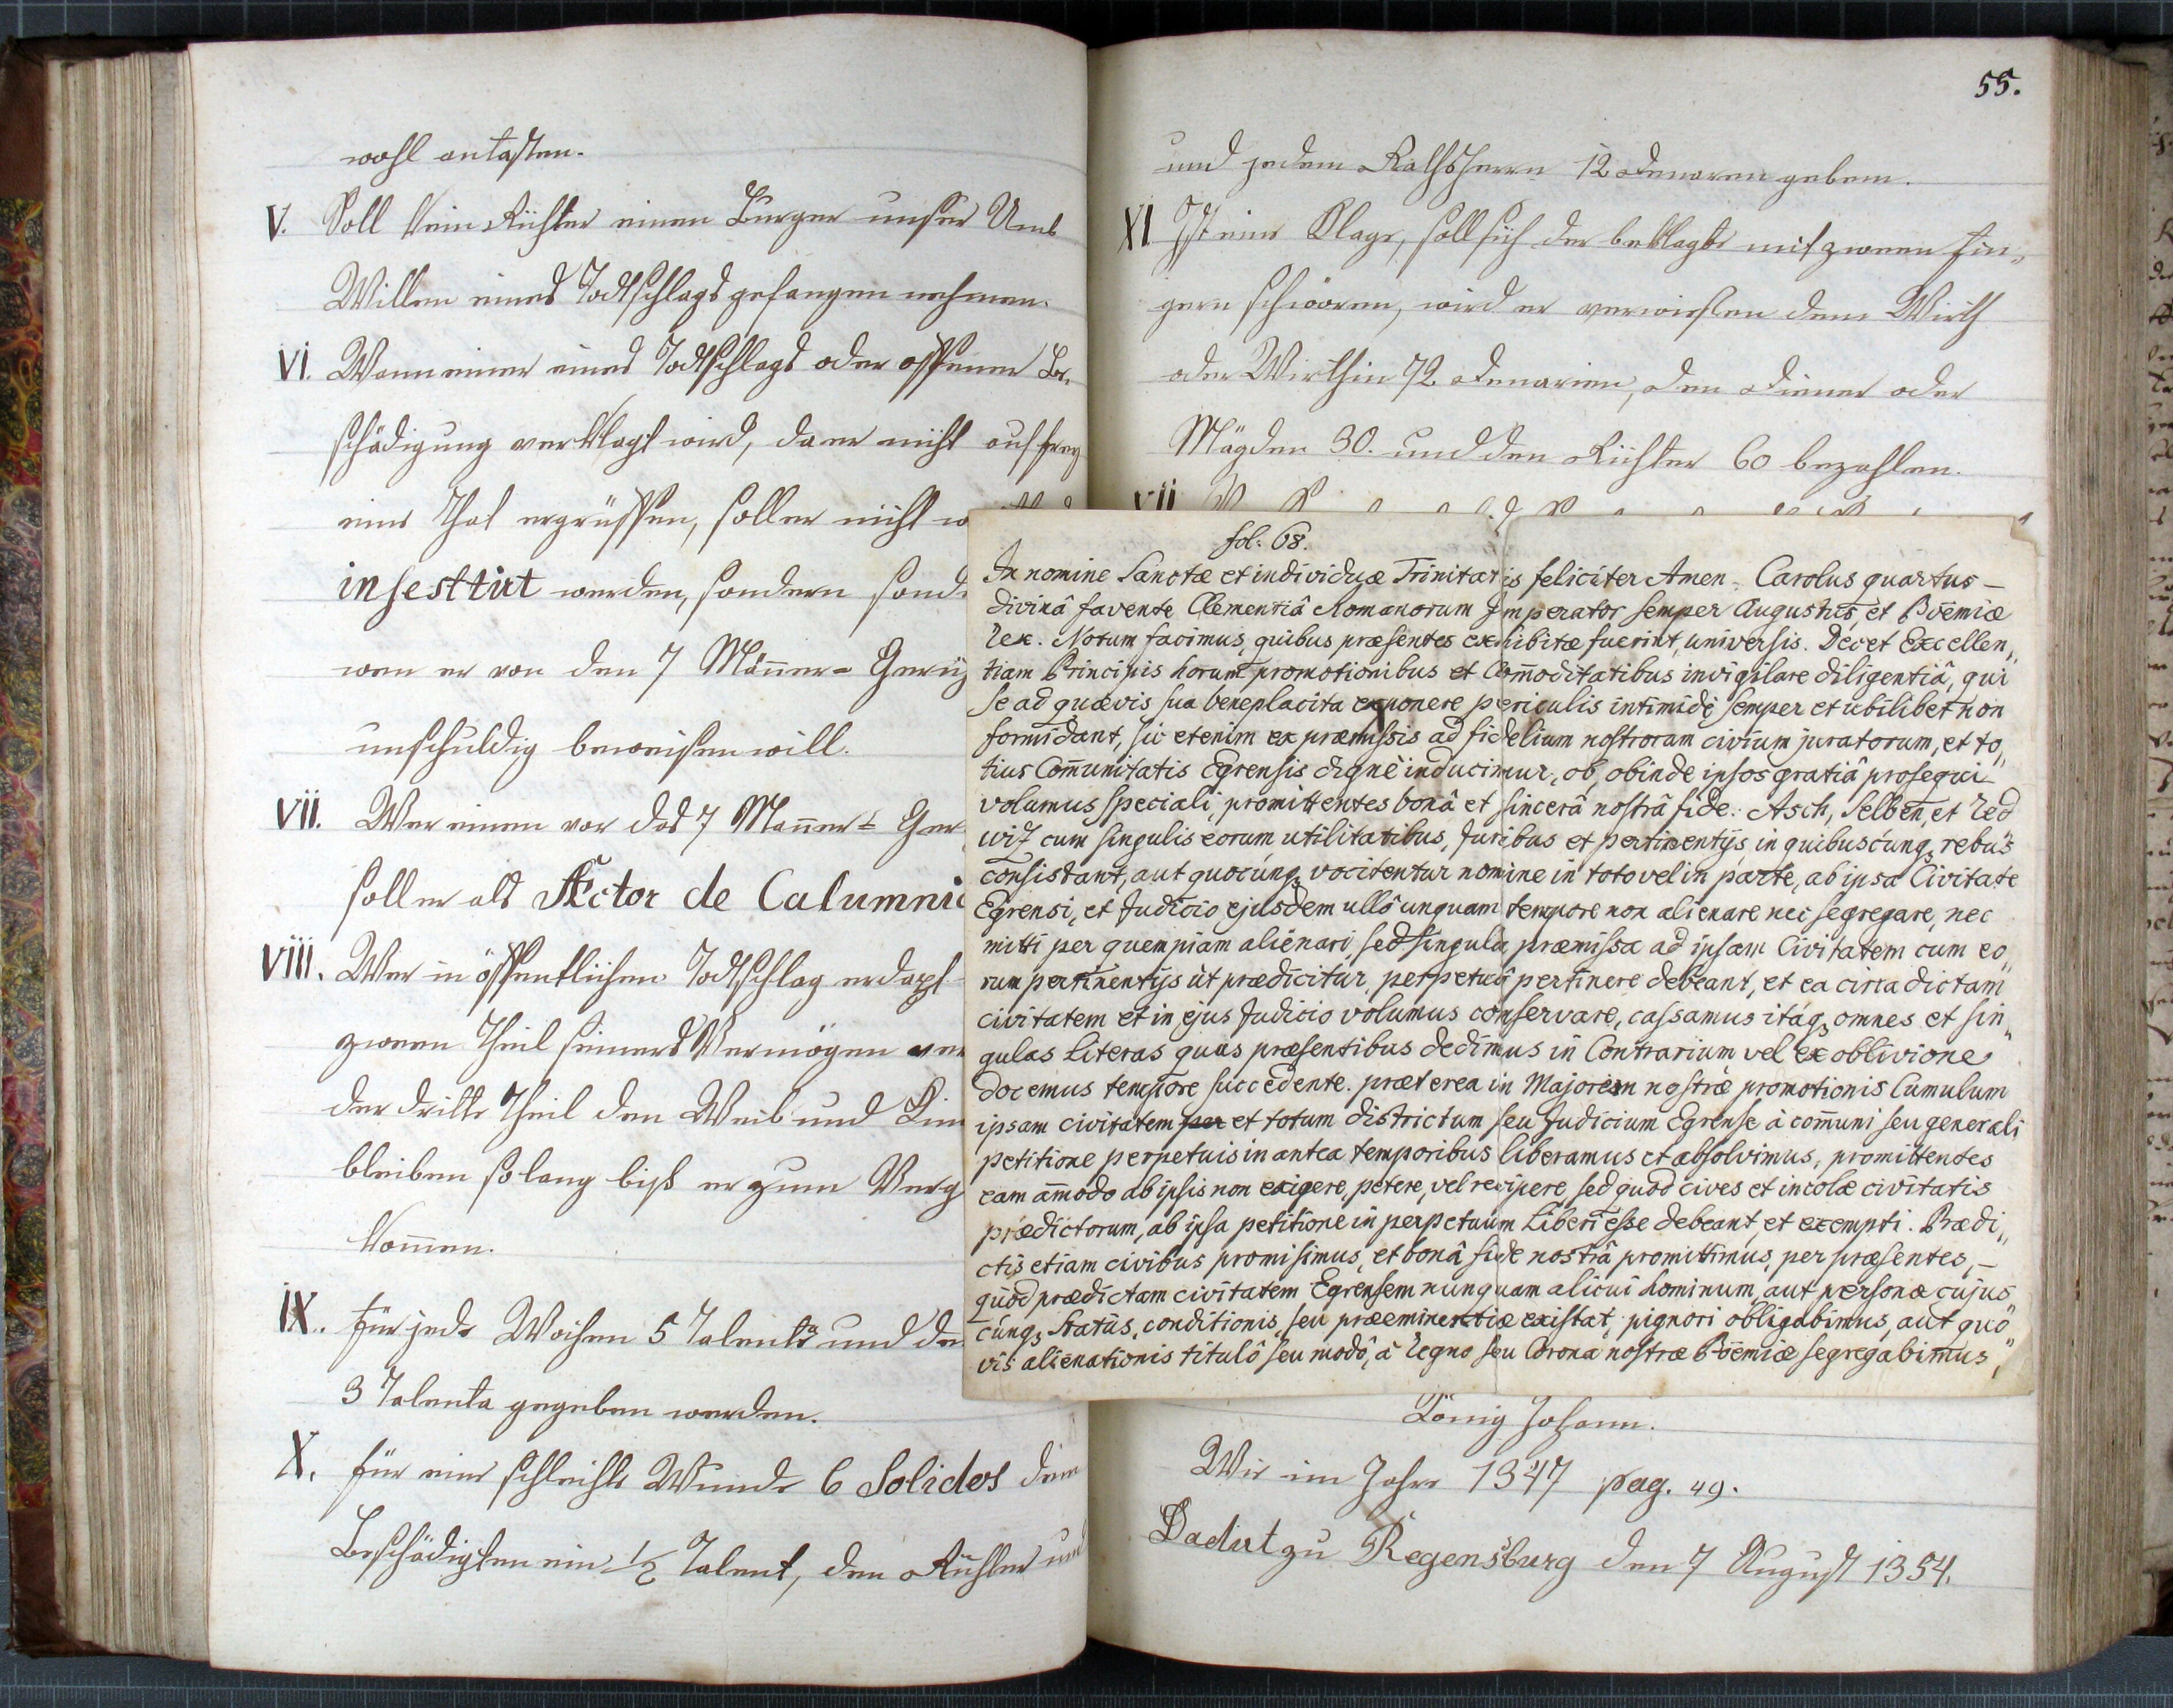 wohl antasten.
V. Soll kein Richter einen Burger unser Umb
Willen eines Todtschlags gefangen nehmen.
VI. Wann einer eines Todtschlags oder offener Be„
schädigung verklagt wird, da er nicht auf frey
einer That ergriffen, soll er nicht
infesttirt werden, sondern
wen er von den 7 Männer=
unschuldig beweisen will.
VII. Wer einen vor das 7 Mañer=
soll er als Actor de Calumnia
VIII. Wer in öffentlichen Todtschlag
zween Theil seines Vermögen
der dritte Theil den Weib und
bleiben so lang biß er zum
kom̄en.
IX. für jede Wochen 5 Talenta und
3 Talenta gegeben werden.
X. für eine schlechte Wunde 6 Solidos dem
Beschädigten ein ½ Talent, dem Richter und
55.
und jedem Rathsherrn 12 denaren geben.
XI Ist eine Klage, soll sich der beklagte mit zween fin„
gern schwören, wird er verwiesen dem Wirth
oder Wirthin 72 denarien, den diener oder
Mägden 30. und den Richter 60 bezahlen.
fol: 68.
In nomine Sanctæ et individuæ Trinitatis feliciter Amen. Carolus quartus –
divinâ favente Clementiâ Romanorum Imperator semper Augustus, et Boëmiæ
rex. Notum facimus, quibus præsentes exhibitæ fuerint, universis. Decet Excellen„
tiam Principis horum promotionibus et Com̄oditatibus invigilare diligentiâ, qui
se ad quævis sua beneplacita exponere periculis intimidè semper et ubilibet non
formidant, sic etenim ex præmissis ad fidelium nostrorum civium juratorum, et to„
tius Com̄unitatis Egrensis dignè inducimur, ob, obinde ipsos gratiâ prosequi
volumus speciali, promittentes bonâ et sincerâ nostrâ fide: Asch, Selben, et Red
wiz cum singulis eorum utilitatibus, Juribus et pertinentijs in quibuscunq3 rebus
consistant, aut quocunq3 vocitentur nomine in toto vel in parte, ab ipsa Civitate
Egrensi, et Judicio ejusdem ullô unquam tempore non alienare nec segregare, nec
mitti per quempiam alienari, sed singula præmissa ad ipsam Civitatem cum eo„
rum pertinentijs ut prædicitur, perpetuô pertinere debeant, et ea circa dictam
civitatem et in ejus Judicio volumus conservare, cassamus itáq3 omnes et sin„
gulas Literas quas præsentibus dedimus in Contrarium vel ex oblivione
docemus tempore succedente. præterea in Majorem nostræ promotionis Cumulum
ipsam civitatem per et totum districtum seu Judicium Egrense à com̄uni seu generali
petitione perpetuis in antea temporibus liberamus et absolvimus, promittentes
eam am̄odo ab ipsis non exigere, petere, vel recipere, sed quod cives et incolæ civitatis
prædictorum, ab ipsa petitione in perpetuum Liberi esse debeant, et exempti. Prædi„
ctis etiam civibus promisimus, et bonâ fide nostrâ promittimus, per præsentes, –
quod prædictam civitatem Egrensem nunquam alicui hominum, aut personæ cujus
cunq3 Status, conditionis, seu præeminentiæ existat, pignori obligabimus, aut quo
vis alienationis titulô seu modô, à regno seu Corona nostræ Boëmiæ segregabimus,„
König Johann.
Wie im Jahre 1347 pag. 49.
Dadirt zu Regensburg den 7 August 1354.